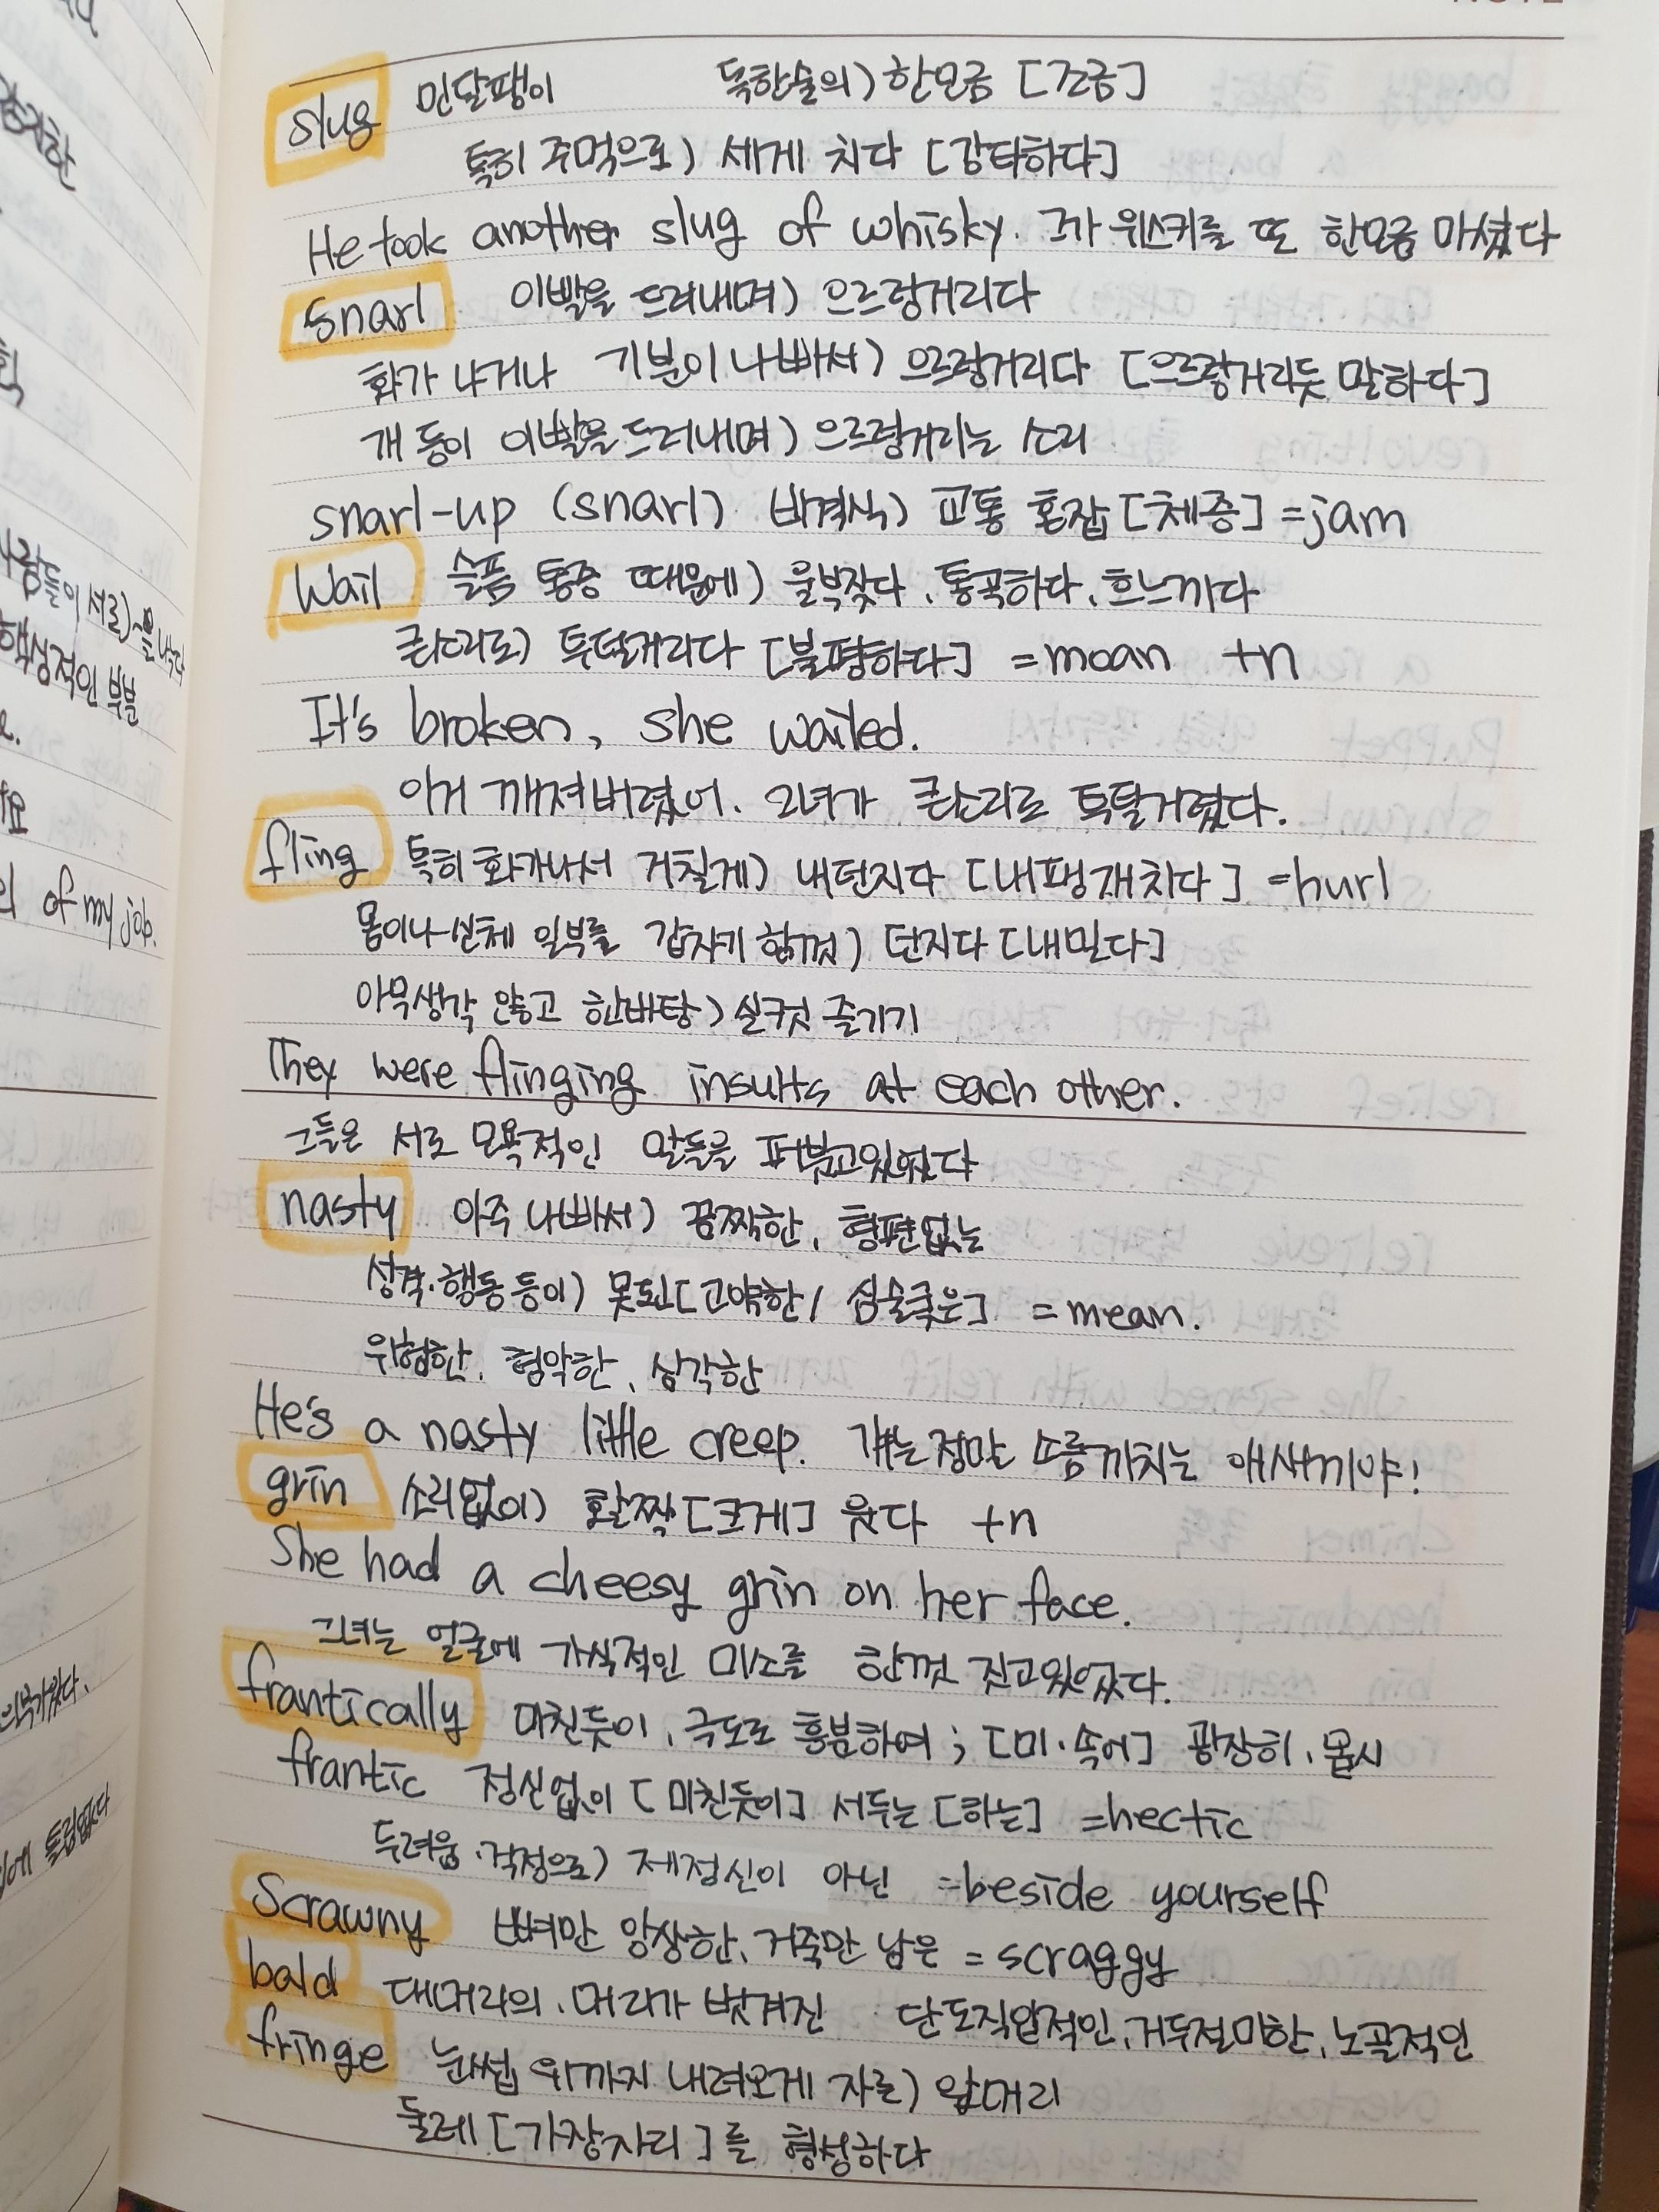 slug 민달팽이 독한술의) 한모금 [조금]
특히 주먹으로) 세게 치다 [강타하다]
He took another slug of whisky. 그가 위스키를 또 한모금 마셨다
snarl 이빨을 드러내며) 으르렁거리다
화가 나거나 기분이 나빠서) 으르렁거리다 [으르렁거리듯 말하다]
개 등이 이빨을 드러내며) 으르렁거리는 소리
snarl-up (snarl) 비격식) 교통 혼잡 [체증] =jam
Wail 슬픔 통증 때문에) 울부짖다, 통곡하다, 흐느끼다
큰소리로) 투덜거리다 [불평하다] =moan +n
It's broken, she wailed.
이거 깨져버렸어. 그녀가 큰소리로 투덜거렸다.
fling 특히 화가나서 거칠게) 내던지다 [내팽개치다] =hurl
몸이나 신체 일부를 갑자기 힘껏) 던지다 [내밀다]
아무생각 않고 한바탕) 실컷 즐기기
They were flinging insults at each other.
그들은 서로 모욕적인 말들을 퍼붓고있었다
nasty 아주 나빠서) 끔찍한, 형편없는
성격·행동 등이) 못된 [고약한/ 심술궂은] =mean.
위험한, 험악한, 심각한
He's a nasty little creep. 걔는 정말 소름끼치는 애새끼야!
grin 소리없이) 활짝 [크게] 웃다 +n
She had a cheesy grin on her face.
그녀는 얼굴에 가식적인 미소를 한껏 짓고있었다.
frantically 미친듯이, 극도로 흥분하여; [미·속어] 굉장히, 몹시
frantic 정신없이 [미친듯이] 서두는 [하는] =hectic
두려움·걱정으로) 제정신이 아닌 =beside yourself
Scrawny 뼈만 앙상한, 거죽만 남은 = scraggy
bald 대머리의, 머리가 벗겨진 단도직입적인, 거두절미한, 노골적인
fringe 눈썹 위까지 내려오게 자른) 앞머리
둘레 [가장자리]를 형성하다
of my job.
핵심적인 부분